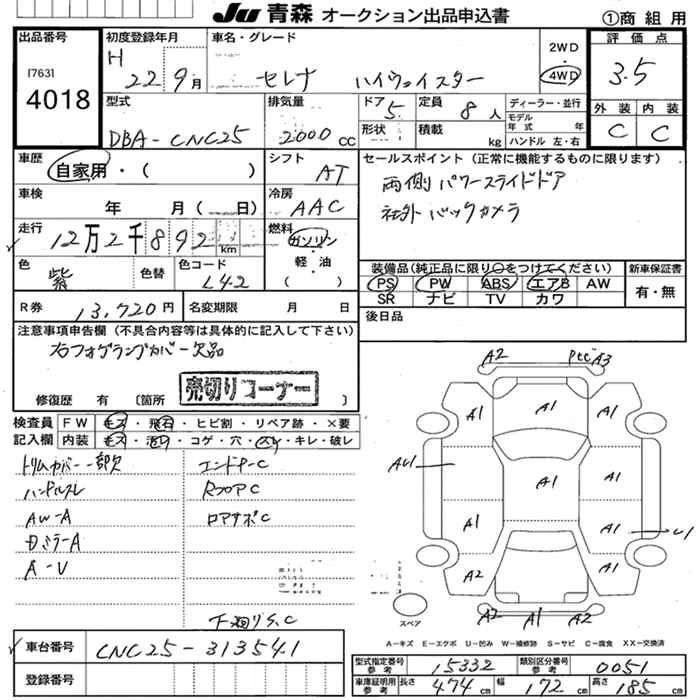 JU 青森 オークション出品申込書 ①商組用
出品番号 [7631 4018
初度登録年月 H 22 9月
車名・グレード セレナ ハイウェイスター
2WD・4WD
評価点 3.5
外装 C 内装 C
型式 DBA-CNC25
排気量 2000 CC
ドア 5 形状
定員 8人 積載 kg
ディーラー・並行
モデル年式 年
ハンドル 左・右
車歴 自家用・( )
シフト AT
セールスポイント (正常に機能するものに限ります)
両側パワースライドドア
社外バックカメラ
車検 年 月(日)
冷房 AAC
走行 12万2千892km
燃料 ガソリン・軽・油 ( )
色 紫 色替 色コード L42
装備品(純正品に限り○をつけてください) 新車保証書
PS PW ABS エアB AW 有・無
SR ナビ TV カワ
R券 13,720円 名変期限 月 日
後日品
注意事項申告欄 (不具合内容等は具体的に記入して下さい)
右フォグランプカバー欠品
修復歴 有 〔箇所 売切りコーナー 〕
検査員記入欄
FW キズ・飛石・ヒビ割・リペア跡・×要
内装 キズ・汚れ・コゲ・穴・スレ・キレ・破レ
トリムカバー一部欠 エンドナーC
ハンドルスレ RフロアC
AW-A ロアサポC
Dミラー A
A-U
下廻りS.C
A2 Ptt A3
A1 A1 A1
AU1 A1 A1
A1 A1 U1
A2 A2
A2 A1 A2
スペア
A-キズ E-エクボ U-凹み W-補修跡 S-サビ C-腐食 XX-交換済
車台番号 CNC25-313541
登録番号
型式指定番号 参考 15332 類別区分番号 参考 0051
車庫証明用 参考 長さ 474cm 幅 172cm 高さ 185cm